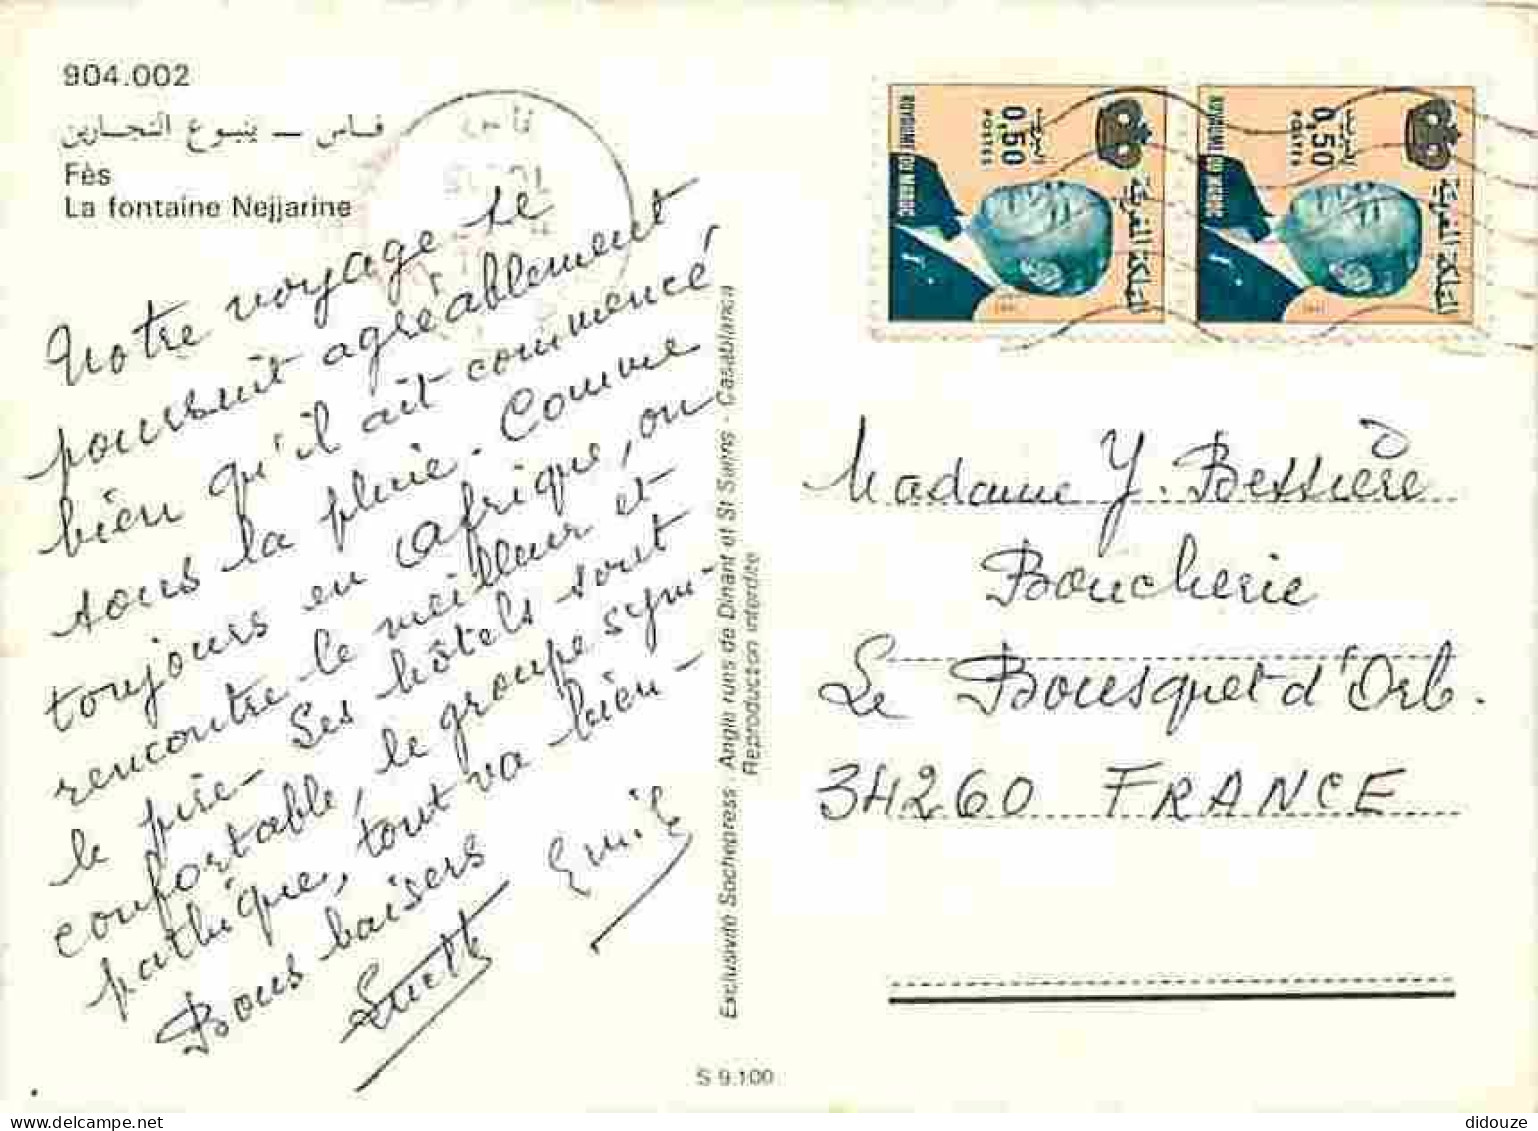 904.002
فاس — ينبوع النجارين
Fès
La fontaine Nejjarine
Notre voyage se
poursuit agréablement
bien qu'il ait commencé
sous la pluie. Comme
toujours en Afrique, on
rencontre le meilleur et
le pire - Ses hôtels sont
confortable, le groupe sym-
pathique, tout va bien -
Bons baisers
Emile
Exclusivité Sochepress - Angle rues de Dinant et St Saëns - Casablanca
Reproduction interdite
S 9.100
ROYAUME DU MAROC
0,50
POSTES
المملكة المغربية
البريد
ROYAUME DU MAROC
0,50
POSTES
المملكة المغربية
البريد
Madame Y. Bessière
Boucherie
Le Bousquet d'Orb.
34260 FRANCE
didouze